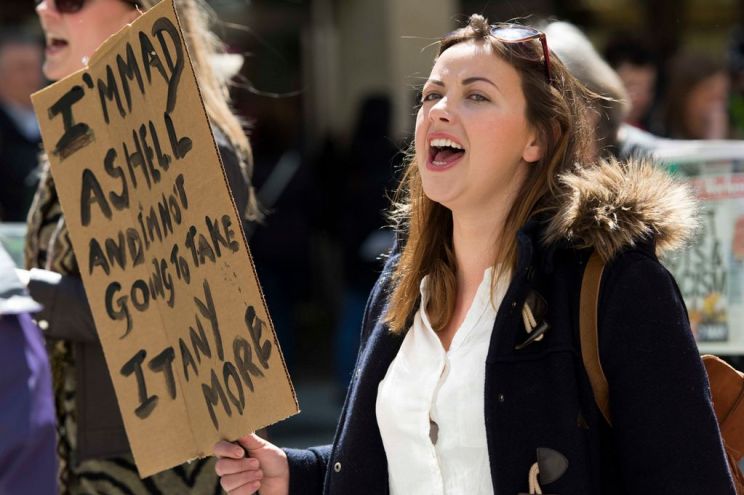 I'M MAD
AS HELL
AND IM NOT
GOING TO TAKE
IT ANY
MORE